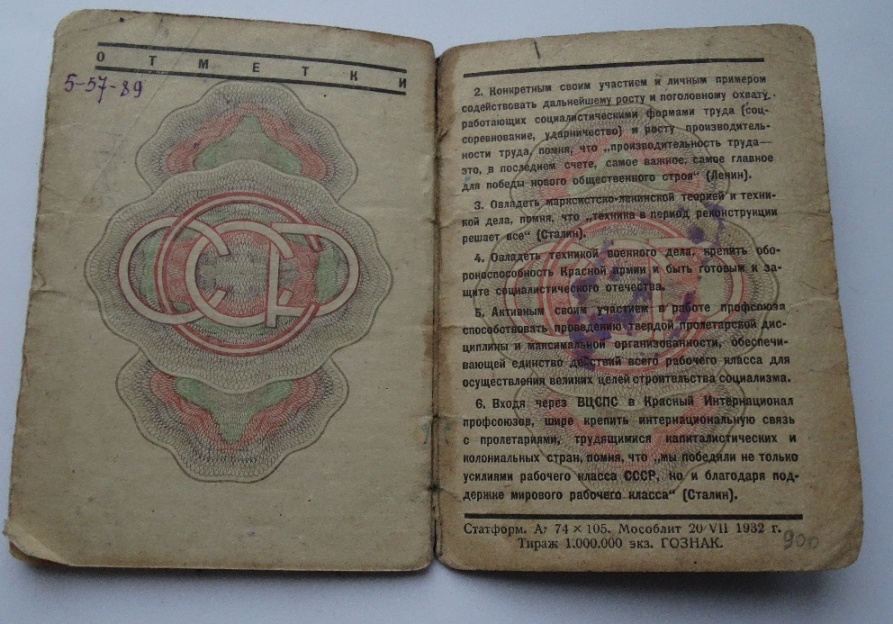 ОТМЕТКИ
5-57-89
СССР
2. Конкретным своим участием и личным примером
содействовать дальнейшему росту и поголовному охвату
работающих социалистическими формами труда (соц-
соревнование, ударничество) и росту производитель-
ности труда, помня, что „производительность труда—
это, в последнем счете, самое важное, самое главное
для победы нового общественного строя" (Ленин).
3. Овладеть марксистско-ленинской теорией и техни-
кой дела, помня, что „техника в период реконструкции
решает все" (Сталин).
4. Овладеть техникой военного дела, крепить обо-
роноспособность Красной армии и быть готовым к за-
щите социалистического отечества.
5. Активным своим участием в работе профсоюза
способствовать проведению твердой пролетарской дис-
циплины и максимальной организованности, обеспечи-
вающей единство действий всего рабочего класса для
осуществления великих целей строительства социализма.
6. Входя через ВЦСПС в Красный Интернационал
профсоюзов, шире крепить интернациональную связь
с пролетариями, трудящимися капиталистических и
колониальных стран, помня, что „мы победили не только
усилиями рабочего класса СССР, но и благодаря под-
держке мирового рабочего класса" (Сталин).
Статформ. А7 74 × 105. Мособлит 20/VII 1932 г.
Тираж 1.000.000 экз. ГОЗНАК.
900